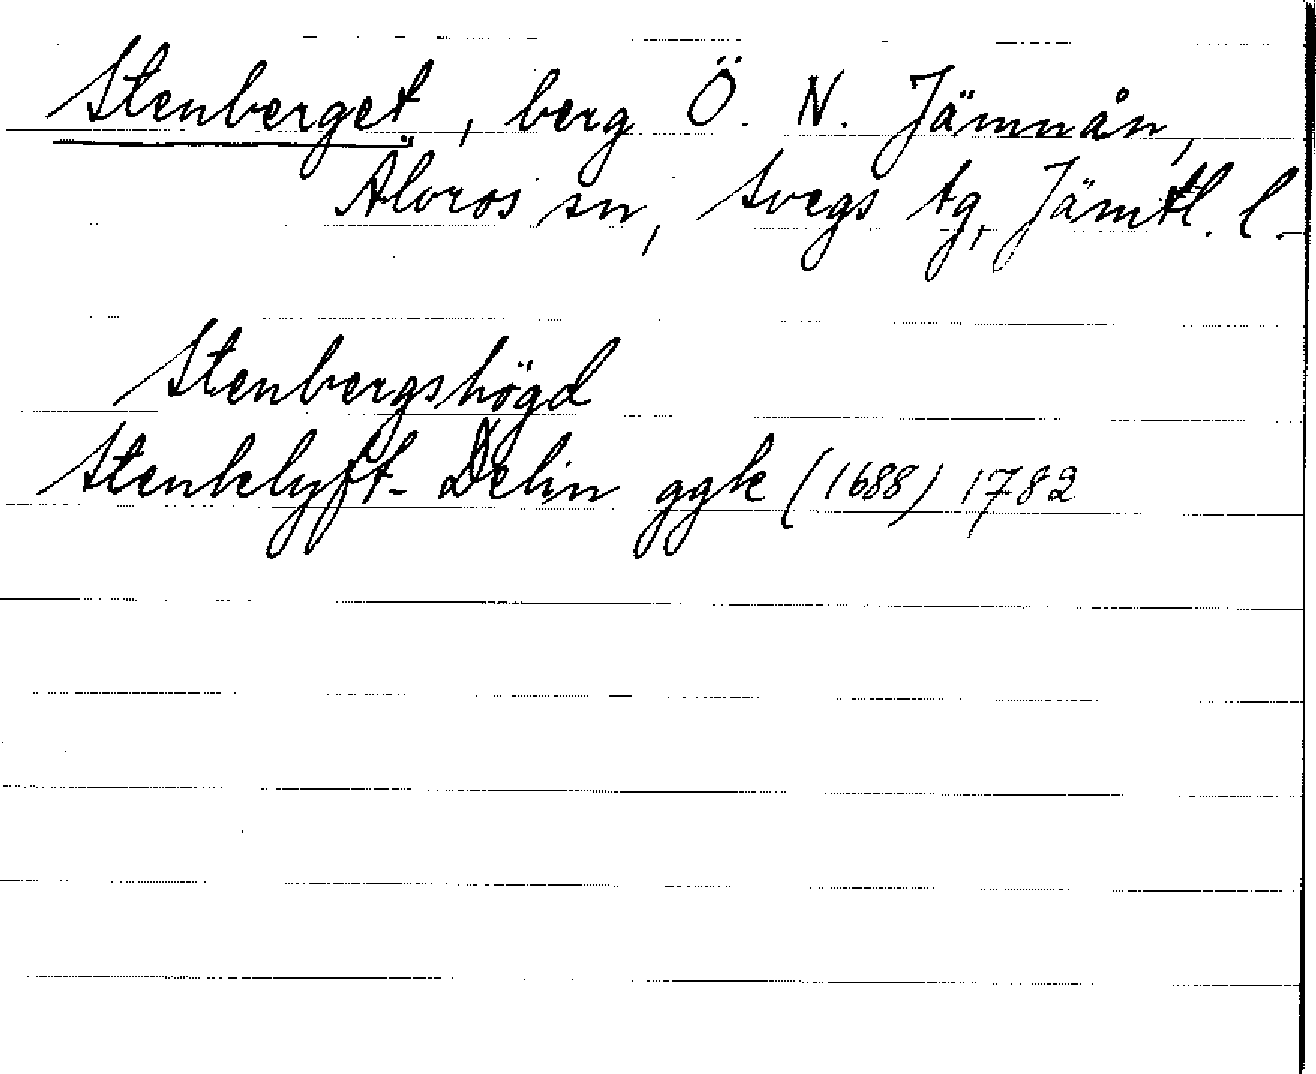 Stenberget, berg Ö. N. Jämnån,
Älvros sn, Svegs tg, Jämtl. l.
Stenbergshögd
Stenklyft- Delin ggk (1688) 1782